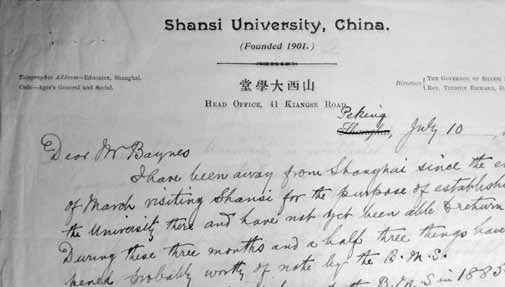 Shansi University, China.
(Founded 1901.)
山西大學堂
Telegraphic Address—Educator, Shanghai.
Code—Ager's General and Social.
Directors
THE GOVERNOR OF SHANSI
REV. TIMOTHY RICHARD, D.
HEAD OFFICE, 41 KIANGSE ROAD
Peking
Shanghai, July 10
Dear Mr Baynes
I have been away from Shanghai since the e
of March visiting Shansi for the purpose of establish
the University there and have not yet been able to return
During these three months and a half three things have
pened probably worthy of note by the B.M.S.
the B.M.S in 1885